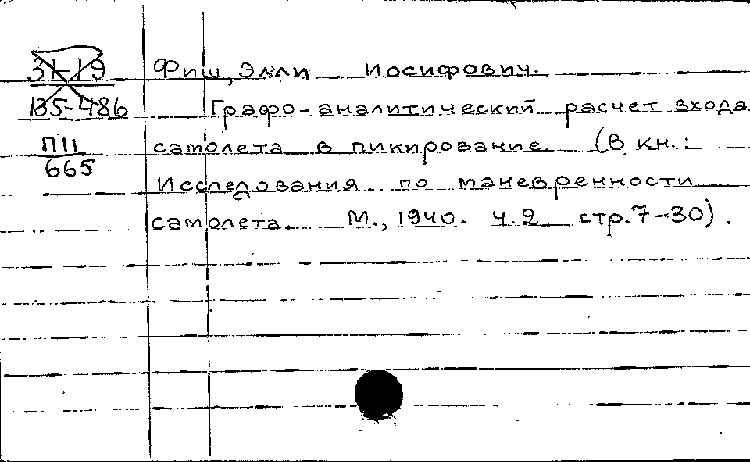 31-19
135-486
П11
665
Фиш, Элли Иосифович.
Графо-аналитический расчет входа
самолета в пикирование. (В кн.:
Исследования по маневренности
самолета. М., 1940. Ч.2 стр.7-30).